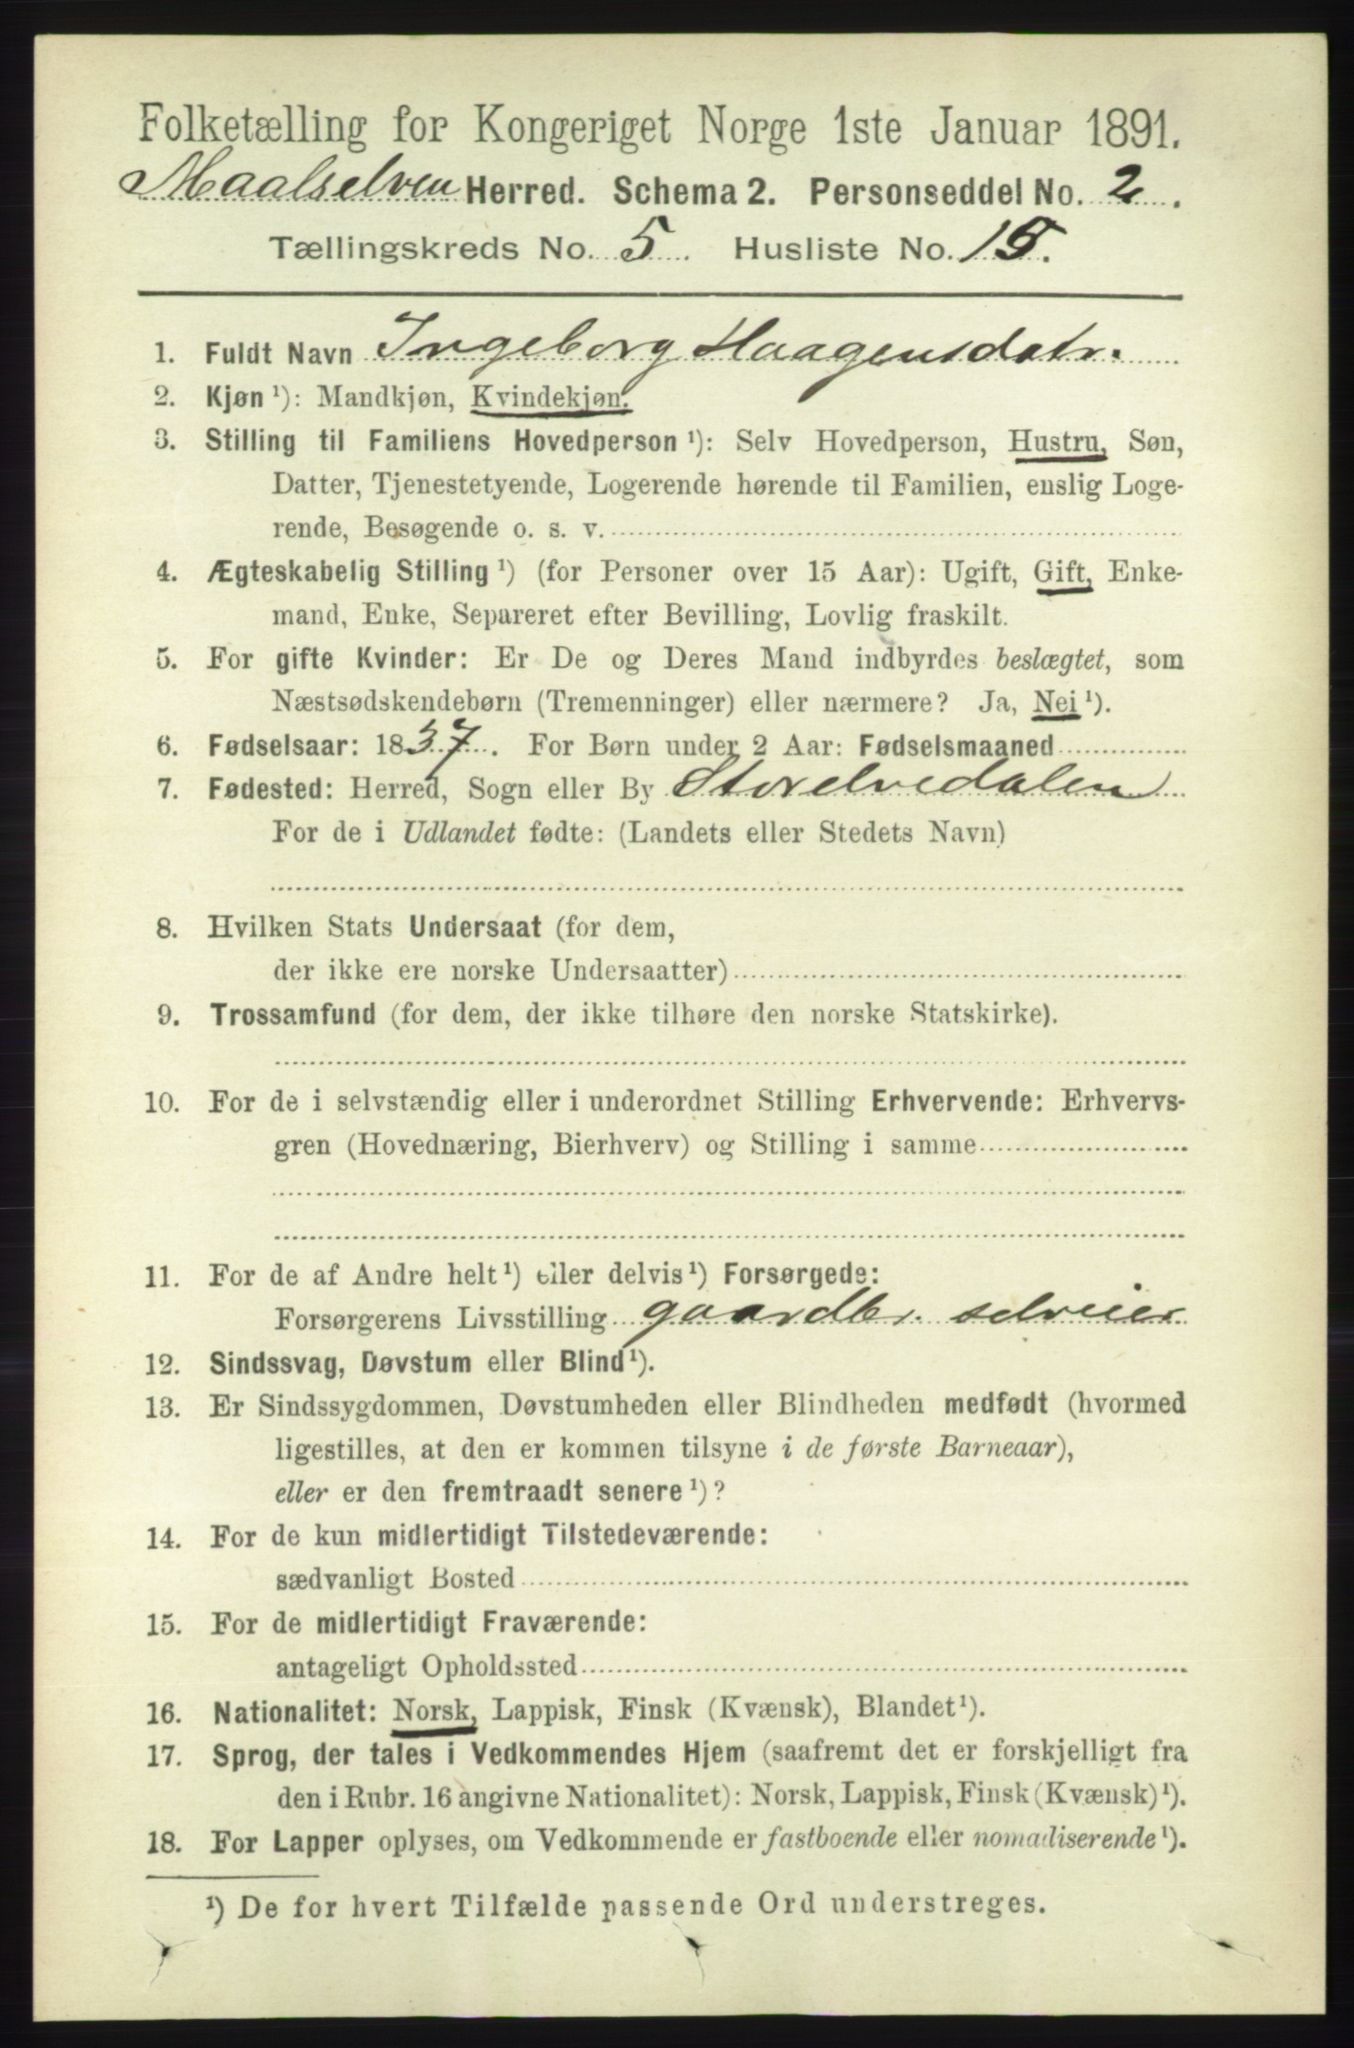 Folketælling for Kongeriget Norge 1ste Januar 1891.
Maalselven Herred. Schema 2. Personseddel No. 2.
Tællingskreds No. 5. Husliste No. 15.
1. Fuldt Navn Ingeborg Haagensdatr.
2. Kjøn ¹): Mandkjøn, Kvindekjøn.
3. Stilling til Familiens Hovedperson ¹): Selv Hovedperson, Hustru, Søn,
Datter, Tjenestetyende, Logerende hørende til Familien, enslig Loge-
rende, Besøgende o. s. v.
4. Ægteskabelig Stilling ¹) (for Personer over 15 Aar): Ugift, Gift, Enke-
mand, Enke, Separeret efter Bevilling, Lovlig fraskilt.
5. For gifte Kvinder: Er De og Deres Mand indbyrdes beslægtet, som
Næstsødskendebørn (Tremenninger) eller nærmere? Ja, Nei ¹).
6. Fødselsaar: 1837. For Børn under 2 Aar: Fødselsmaaned
7. Fødested: Herred, Sogn eller By Storelvedalen
For de i Udlandet fødte: (Landets eller Stedets Navn)
8. Hvilken Stats Undersaat (for dem,
der ikke ere norske Undersaatter)
9. Trossamfund (for dem, der ikke tilhøre den norske Statskirke).
10. For de i selvstændig eller i underordnet Stilling Erhvervende: Erhvervs-
gren (Hovednæring, Bierhverv) og Stilling i samme
11. For de af Andre helt ¹) eller delvis ¹) Forsørgede:
Forsørgerens Livsstilling gaardbr. selveier
12. Sindssvag, Døvstum eller Blind ¹).
13. Er Sindssygdommen, Døvstumheden eller Blindheden medfødt (hvormed
ligestilles, at den er kommen tilsyne i de første Barneaar),
eller er den fremtraadt senere ¹)?
14. For de kun midlertidigt Tilstedeværende:
sædvanligt Bosted
15. For de midlertidigt Fraværende:
antageligt Opholdssted
16. Nationalitet: Norsk, Lappisk, Finsk (Kvænsk), Blandet ¹).
17. Sprog, der tales i Vedkommendes Hjem (saafremt det er forskjelligt fra
den i Rubr. 16 angivne Nationalitet): Norsk, Lappisk, Finsk (Kvænsk) ¹).
18. For Lapper oplyses, om Vedkommende er fastboende eller nomadiserende ¹).
¹) De for hvert Tilfælde passende Ord understreges.